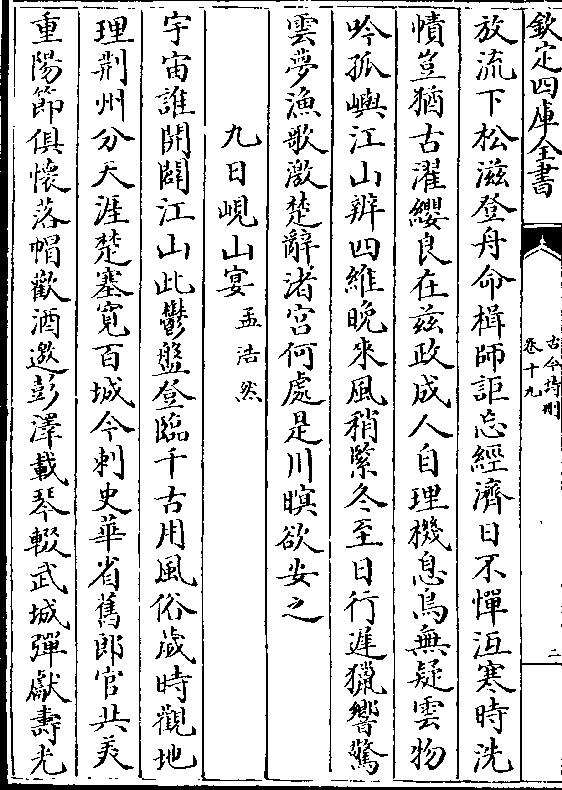 欽定四庫全書
古今詩刪
卷十九
二
放流下松滋登舟命楫師詎忘經濟日不憚沍寒時洗
幘豈猶古濯纓良在兹政成人自理機息鳥無疑雲物
吟孤嶼江山辨四維晚來風稍緊冬至日行遲獵響驚
雲夢漁歌激楚辭渚宮何處是川暝欲安之
九日峴山宴 孟浩然
宇宙誰開闢江山此鬱盤登臨千古用風俗歲時觀地
理荆州分天涯楚塞寛百城今刺史華省舊郎官共美
重陽節俱懷落帽歡酒邀彭澤載琴輟武城彈獻壽先